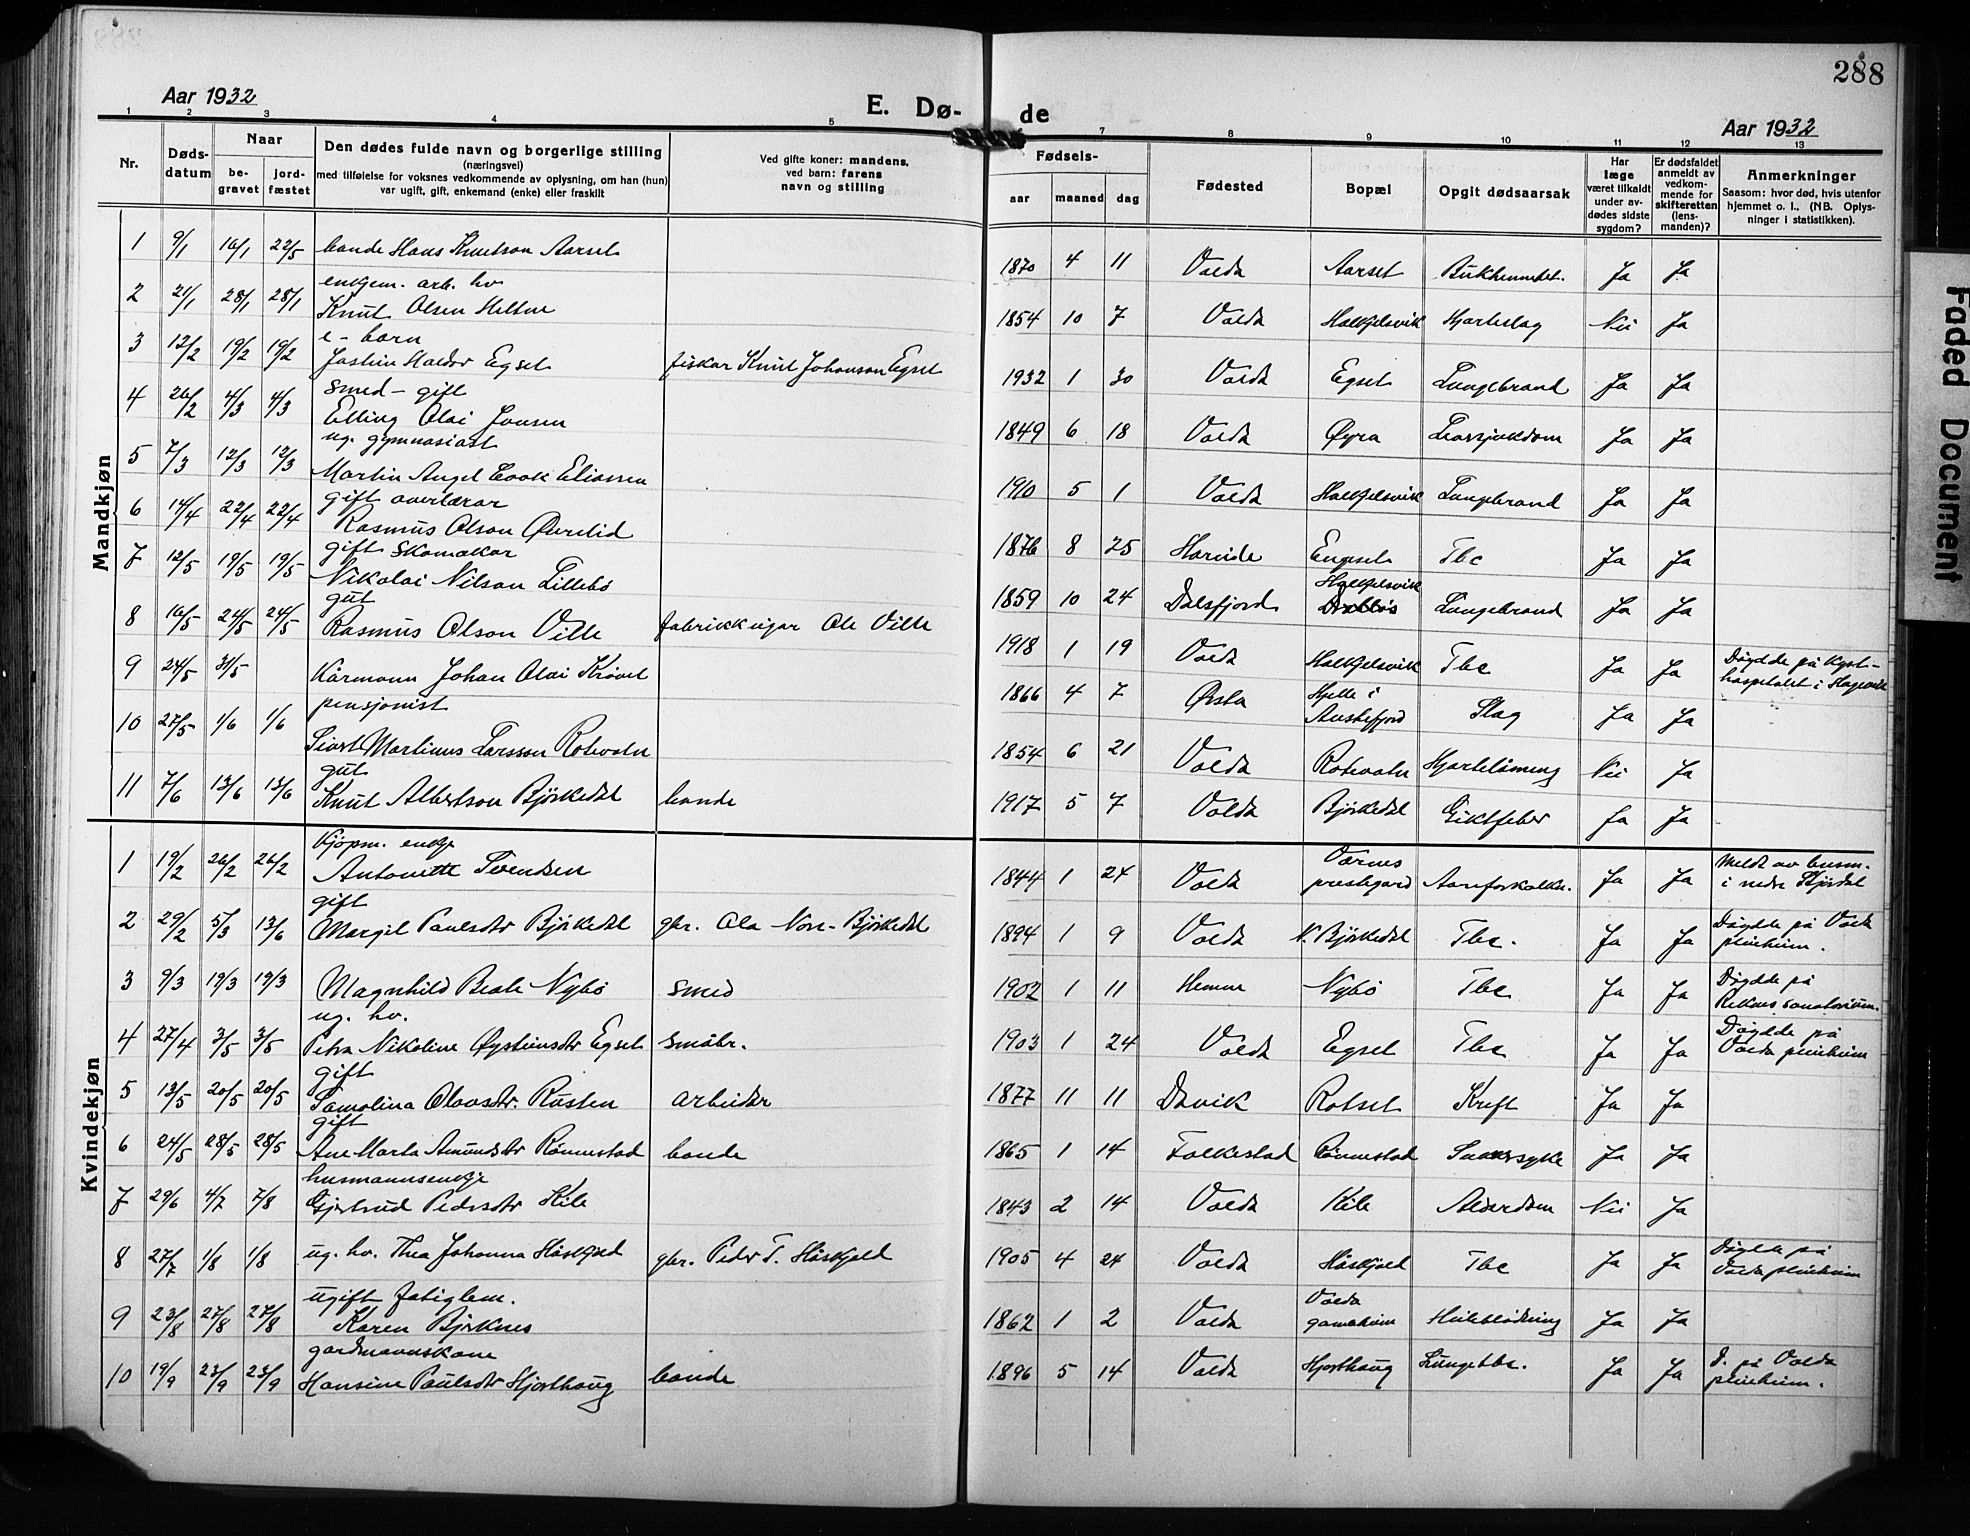 288
Aar 1932
E. Dø-
de
Aar 1932
1 2 3 4 5 7 8 9 10 11 12 13
Nr.
Døds-
datum
Naar
be-
gravet
jord-
fæstet
Den dødes fulde navn og borgerlige stilling
(næringsvei)
med tilføielse for voksnes vedkommende av oplysning, om han (hun)
var ugift, gift, enkemand (enke) eller fraskilt
Ved gifte koner: mandens,
ved barn: farens
navn og stilling
Fødsels-
aar maaned dag
Fødested
Bopæl
Opgit dødsaarsak
Har
læge
været tilkaldt
under av-
dødes sidste
sygdom?
Er dødsfaldet
anmeldt av
vedkom-
mende for
skifteretten
(lens-
manden)?
Anmerkninger
Saasom: hvor død, hvis utenfor
hjemmet o. l., (NB. Oplys-
ninger i statistikken).
Mandkjøn
1 9/1 16/1 22/5 bonde Hans Knutson Aarset 1870 4 11 Volda Aarset Ja Ja
2 21/1 28/1 28/1 enkem. arb. hv
Knut Olsen Heltne 1854 10 7 Volda Halkjelsvik Hjarteslag Nei Ja
3 12/2 19/2 19/2 e - barn
Jostein Haldor Egset fiskar Knut Johanson Egset 1932 1 30 Volda Egset Lungebrand Ja Ja
4 26/2 4/3 4/3 smed - gift
Elling Olai Jonsen 1849 6 18 Volda Øyra Ja Ja
5 7/3 12/3 12/3 ug. gymnasiast
Martin Angel Cook Eliassen 1910 5 1 Volda Halkjelsvik Lungebrand Ja Ja
6 14/4 22/4 22/4 gift overlærar
Rasmus Olson Øvrelid 1876 8 25 Engset Tbc Ja Ja
7 12/5 19/5 19/5 gift skomakar
Nikolai Nilson Lillebø 1859 10 24 Dalsfjord Halkjelsvik Lungebrand Ja Ja
8 16/5 24/5 24/5 gut
Rasmus Olson Ville fabrikkeigar Ole Ville 1918 1 19 Volda Halkjelsvik Tbc Ja Ja Døydde på Kyst-
hospitalet i Hagevik
9 24/5 31/5 Kårmann Johan Olai Krøvel 1866 4 7 Ørsta Hjelle i
Austefjord Slag Ja Ja
10 27/5 1/6 1/6 pensjonist
Sivert Martinus Larsson Rotevatn 1854 6 21 Volda Rotevatn Hjartelåming Nei Ja
11 7/6 13/6 13/6 gut
Knut Albertson Bjørkedal bonde 1917 5 7 Volda Bjørkedal Giktfeber Ja Ja
Kvindekjøn
1 19/2 26/2 26/2 Kjøpm. enkje
Antonette Svendsen 1844 1 24 Volda Værnes
prestegard Aareforkalkn. Ja Ja Meldt av lensm.
i nedre Stjørdal
2 29/2 5/3 13/6 gift
Margit Paulsdtr Bjørkedal gbr. Ola Nore-Bjørkedal 1894 1 9 Volda N. Bjørkedal Tbc. Ja Ja Døydde på Volda
pleieheim.
3 9/3 19/3 19/3 Magnhild Beate Nybø smed 1902 1 11 Hemne Nybø Tbc Ja Ja Døydde på
Reknes sanatorium.
4 27/4 3/5 3/5 ug. hv.
Petra Nikoline Øysteinsdtr Egset småbr. 1903 1 24 Volda Egset Tbc Ja Ja Døydde på
Volda pleieheim
5 13/5 20/5 20/5 gift
Samolina Olavsdtr. Rusten arbeidar 1877 11 11 Davik Rotset Kreft Ja Ja
6 24/5 28/5 28/5 gift
Ane Marta Amundsdtr Rønnestad bonde 1865 1 14 Folkestad Rønnestad Sukkersyke Ja Ja
7 29/6 4/7 7/8 husmannsenkje
Gjertrud Pedersdtr Kile 1843 2 14 Volda Kile Alderdom Nei Ja
8 27/7 1/8 1/8 ug. hv. Thea Johanna Håskjold gbr. Peder T. Håskjold 1905 4 24 Volda Håskjold Tbc Ja Ja Døydde på
Volda pleieheim
9 23/8 27/8 27/8 ugift fatiglem.
Karen Bjørknes 1862 1 2 Volda Volda
gamleheim Heileblødning Ja Ja
10 19/9 23/9 23/9 gardmannskone
Hansine Paulsdtr Hjorthaug bonde 1896 5 14 Volda Hjorthaug Lungetbc. Ja Ja D. på Volda
pleieheim.
Faded Document